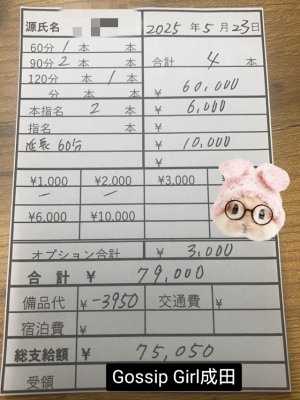 源氏名
2025 年 5 月 23 日
60分 1 本 本
90分 2 本 本
合計 4 本
120分 本 1 本
分 本 本
¥ 60,000
本指名 2 本
¥ 6,000
指名 本
¥
延長 60分
¥ 10,000
¥1,000 ¥2,000 ¥3,000
— —
¥6,000 ¥10,000
オプション合計 ¥ 3,000
合計 ¥ 79,000
備品代 ¥-3950 交通費 ¥
宿泊費 ¥
総支給額 ¥ 75,050
受領
Gossip Girl成田